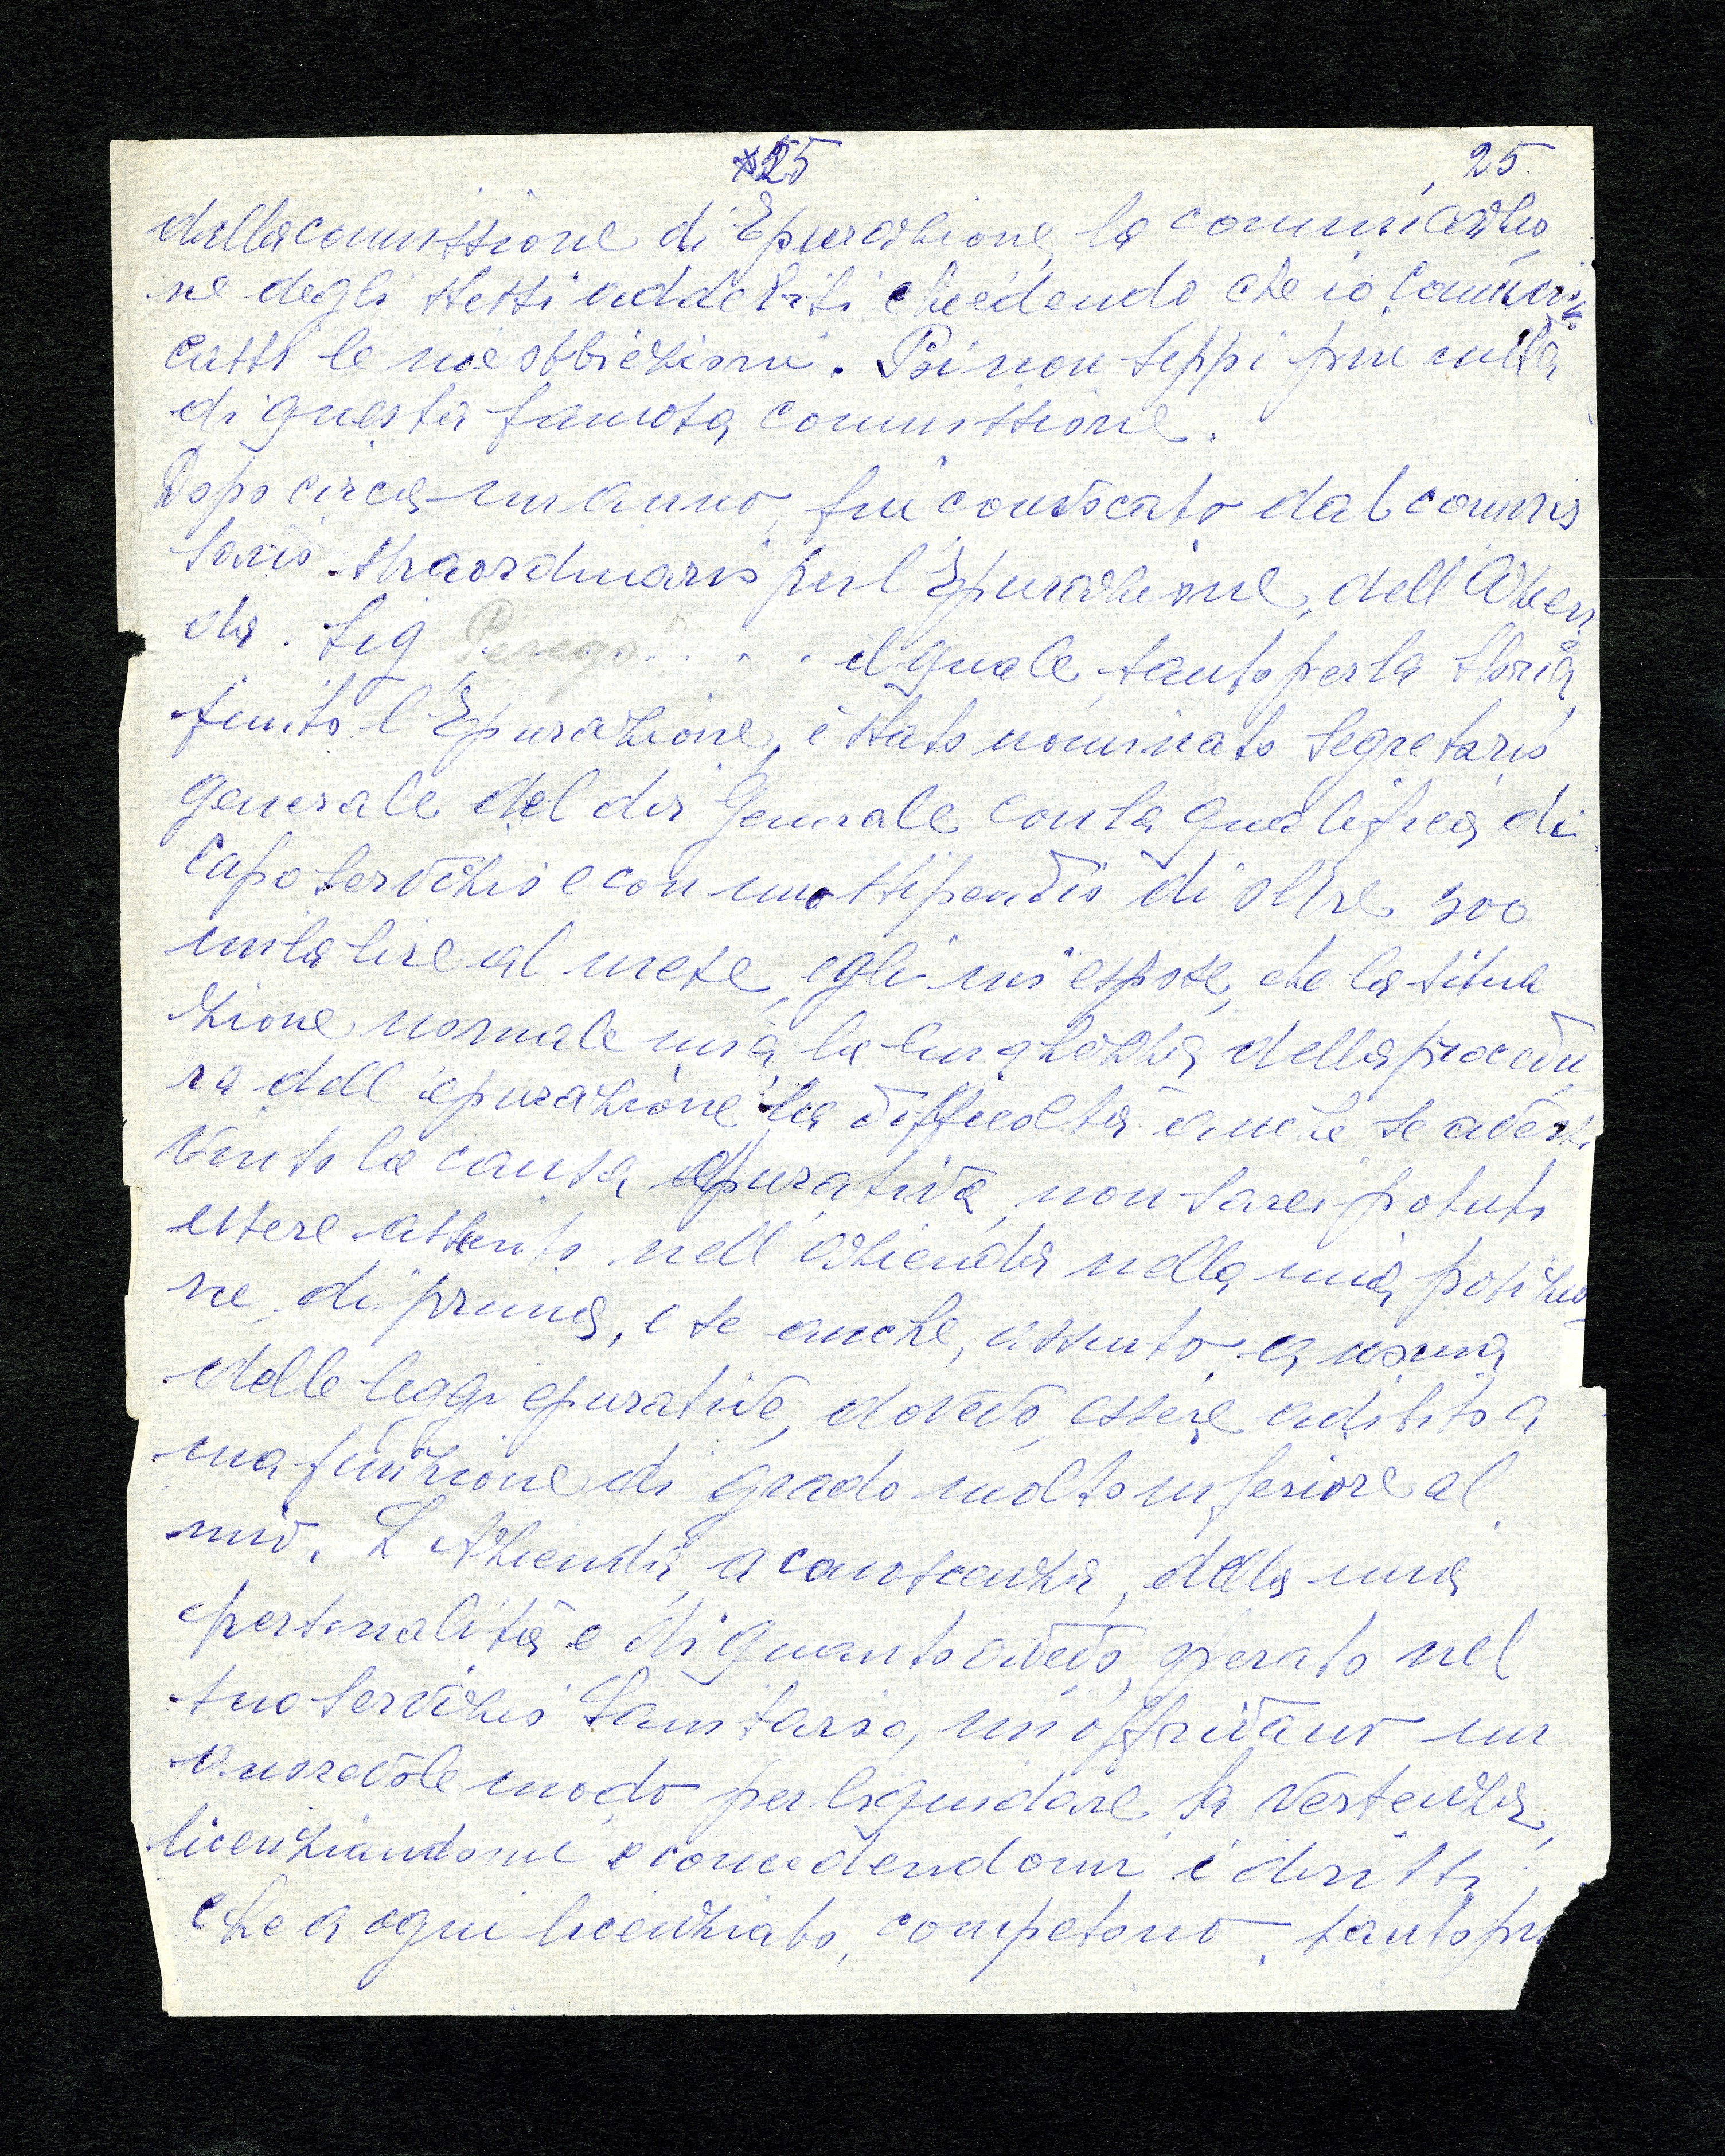 25 25.
della comissione di Epurazione, la comunicazio
ne degli stessi addebiti chiedendo che io comuni
cassi le mie obbiezioni. Poi non seppi piu nulla
di questa famosa comissione.
Dopo circa un anno, fui convocato dal commis
sario straordinario per l'Epurazione, dell'Azien
da. Sig Perego . . . . il quale, tanto per la storia,
finito l'Epurazione, è stato nominato Segretario
Generale del dir Generale con la qualifica di
Capo Servizio e con uno stipendio di oltre 300
mila lire al mese, egli mi espose, che la situa
zione normale mia, la lunghezza della procedu
ra dell'epurazione la difficolta anche se avessi
vinto la causa epurativa, non sarei potuto
essere assunto nell'azienda nella mia posizio
ne di prima, e se anche, assunto, a norma
delle leggi epurative, dovevo, essere adibito a
una funzione di grado molto inferiore al
mio. L'Azienda, a conoscenza, della mia
personalità e di quanto avevo, operato nel
suo Servizio Sanitario, mi offrivano un
onorevole modo per liquidare la vertenza,
licenziandomi e concedendomi i diritti
che a ogni licenziato, competono, tanto piu